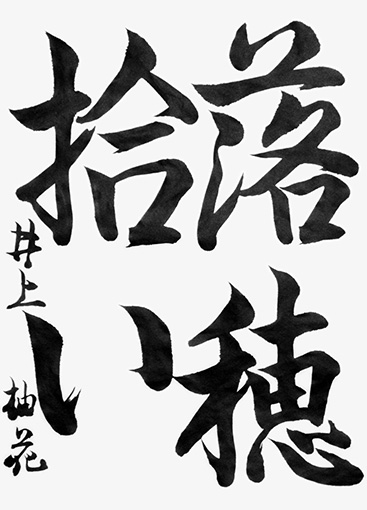 落穂
拾い
井上 柚花